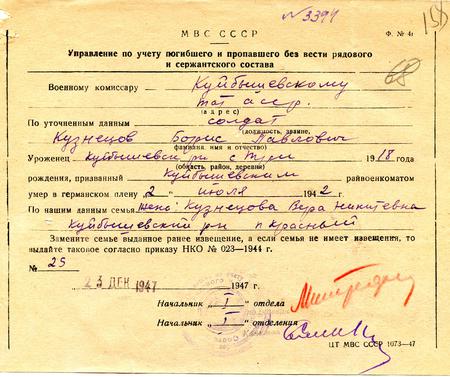 №3399
158
МВС СССР
Ф. № 4г
Управление по учету погибшего и пропавшего без вести рядового
и сержантского состава
68
Военному комиссару Куйбышевскому
тат асср.
(адрес)
По уточненным данным солдат
(должность, звание,
Кузнецов Борис Павлович
фамилия, имя и отчество)
Уроженец Куйбышевский рн с Трои 1918 года
(область, район, деревни)
рождения, призванный Куйбышевским райвоенкоматом
умер в германском плену 2 июля 1942 г.
По нашим данным семья жена: Кузнецова Вера Никитевна
Куйбышевский рн п Красный
Замените семье выданное ранее извещение, а если семья не имеет извещения, то
выдайте таковое согласно приказу НКО № 023—1944 г.
№ 25
23 ДЕК 1947 1947 г.
Начальник „I“ отдела
Начальник „I“ отделения
ЦТ МВС СССР 1073—47